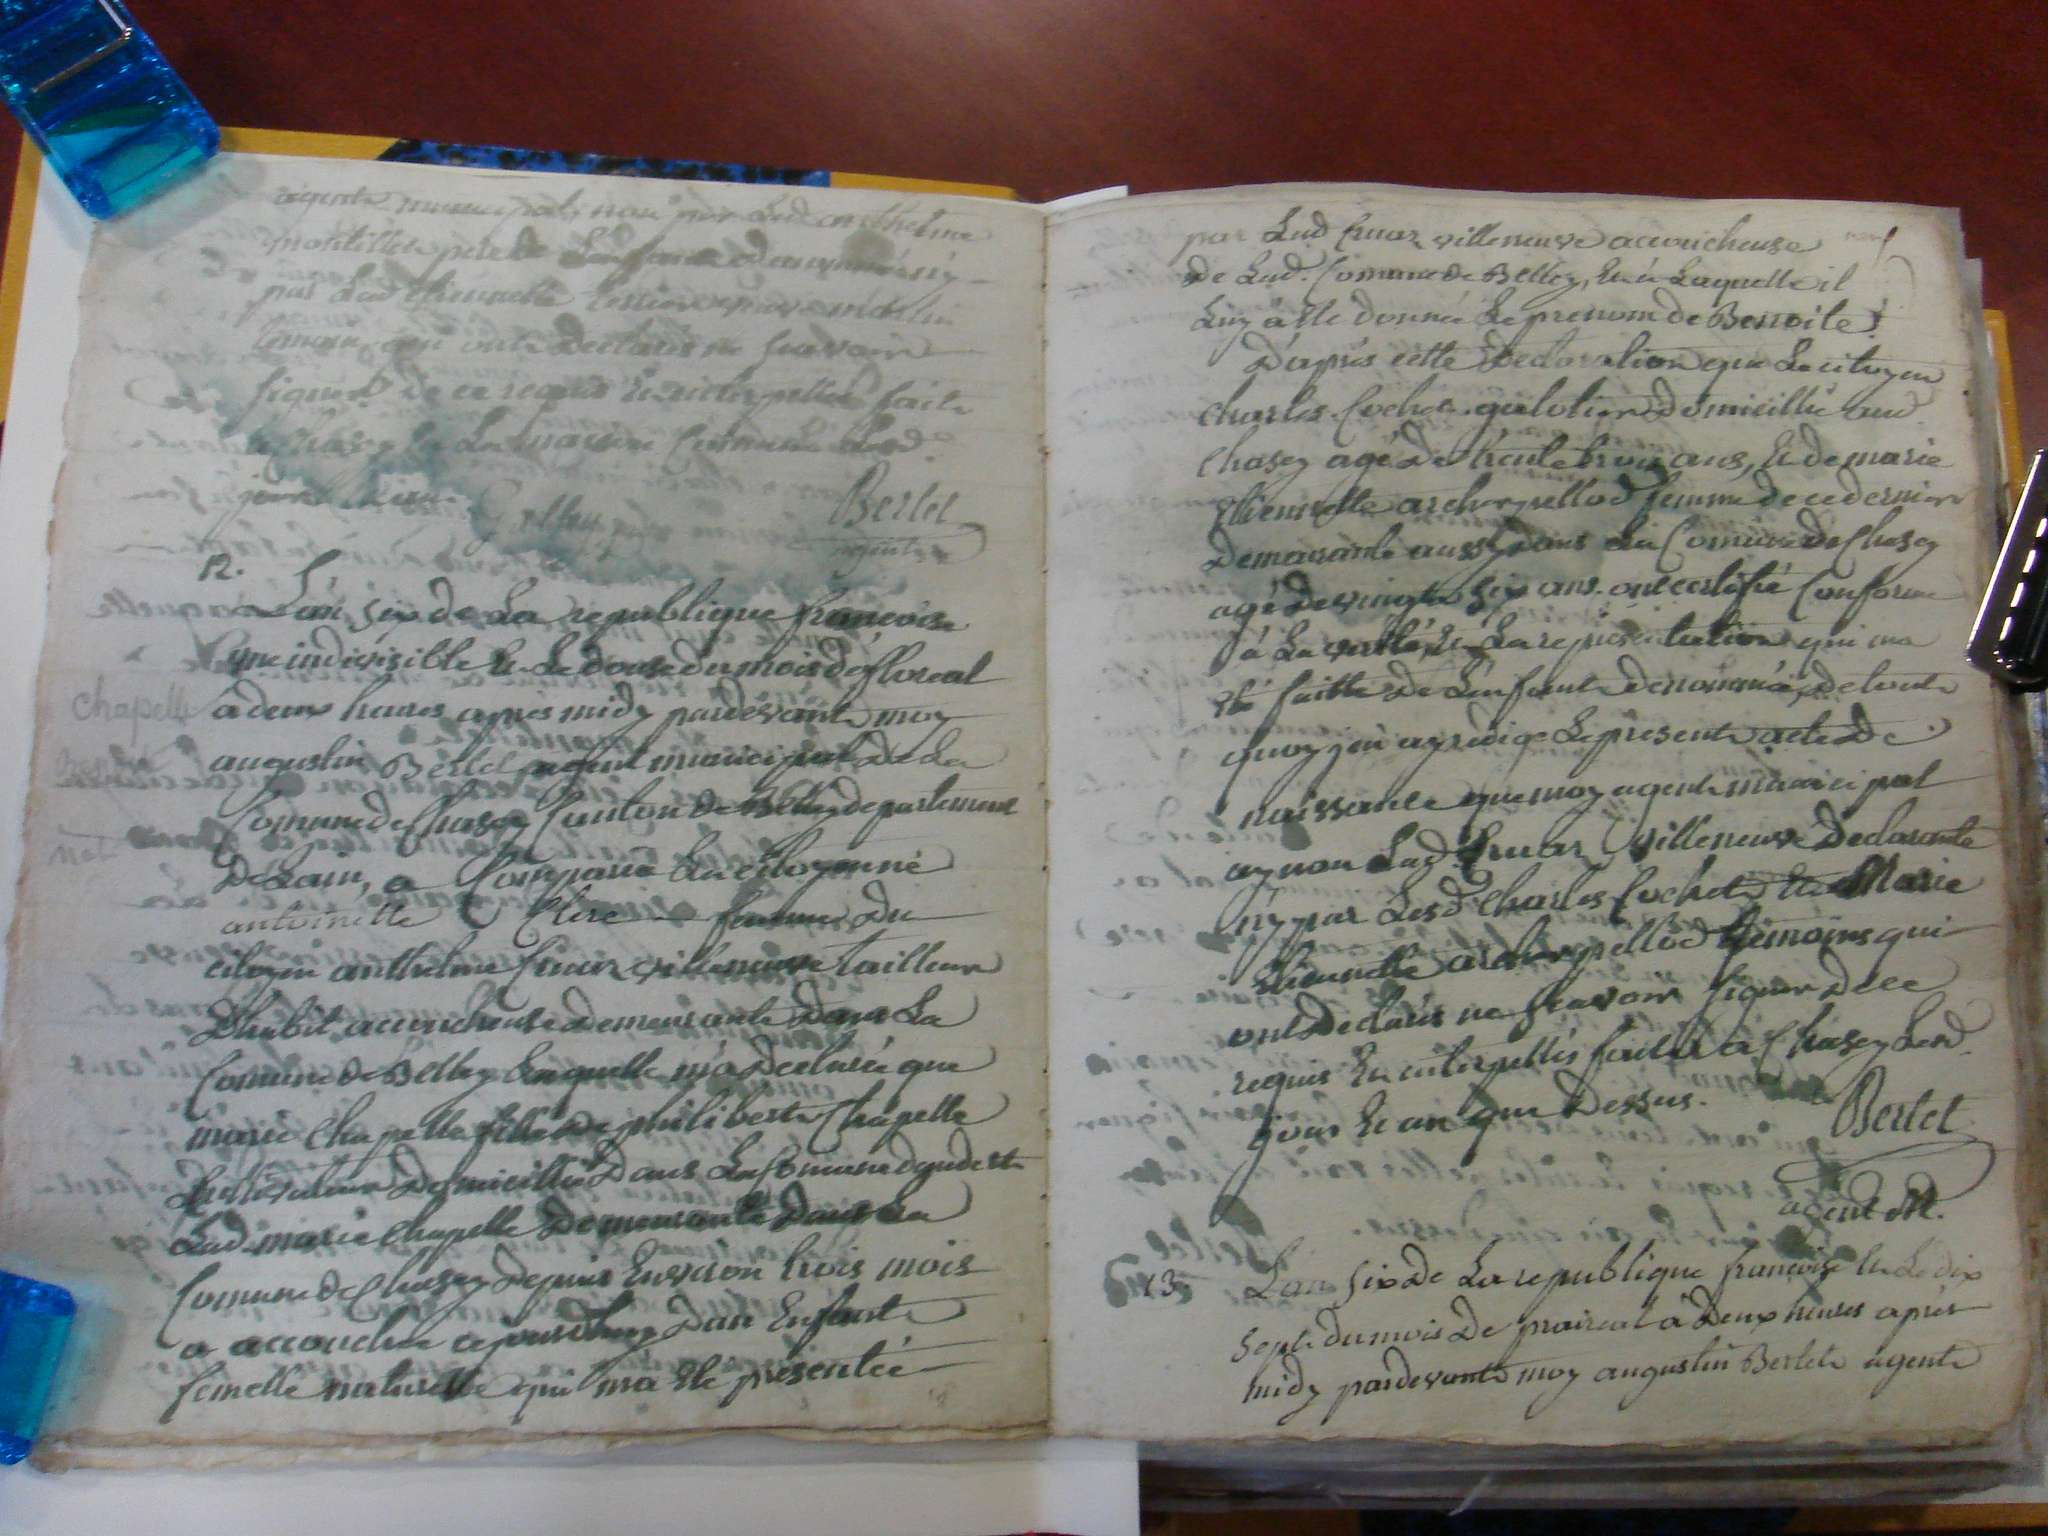 agent municipal, non par Lud. anthelme
pere de Lenfant
par Lud. Etiennette
temoin qui ont declarés ne scavoir
signer de ce requis et interpellés fait
a Chasey En La maison Commune Led.
jour et an
Bertet
agent
12.
L'an six de La republique francoise
une indivisible et Le douse du mois de floreal
a deux heures apres midy pardevant moy
Chapelle
augustin Bertet agent municipal de La
Comune de Chasey Canton de Belley departement
De Lain, a Comparue La citoyenne
antoinette Clerc femme du
citoyen anthelme Cruaz villeneuve tailleur
D'habit accoucheuse demeurante Dans La
Comune de Belley Laquelle m'a declarée que
marie Chapelle fille de philibert Chapelle
Cultivateur Domicillié Dans La Comune d'andert
Lad. marie Chapelle Demeurante Dans La
Comune de Chasey Depuis Environ trois mois
a accouchée cejourdhuy D'un Enfant
femelle naturelle qui m'a Eté presentée
par Lad Cruaz villeneuve accoucheuse
neuf
de Lad. Comune de Belley, Et a Laquelle il
Luy a Ete donnée Le prenom de Benoite
D'apres cette Declaration que Le citoyen
Charles Cochet galotier Domicillié aud.
Chasey agé De trente trois ans, Et de marie
Etiennette femme de ce dernier
Demeurante aussy dans La Comune de Chasey
agé de vingt six ans ont certifié Conforme
à La verité, Et La representation qui ma
Eté faitte de Lenfant denommé, de tout
quoy jen ay redigé Le present acte de
naissance que moy agent municipal
ay non Lad Cruaz villeneuve Declarante
n'y par Lesd. Charles Cochet Et Marie
Etiennette temoins qui
ont Declarés ne scavoir signer de ce
requis Et interpellés fait a Chasey Led.
jour Et an que Dessus.
Bertet
agent M.
13
L'an six de La republique francoise Et Le dix
sept du mois de prairial à deux heures apres
midy pardevant moy augustin Bertet agent